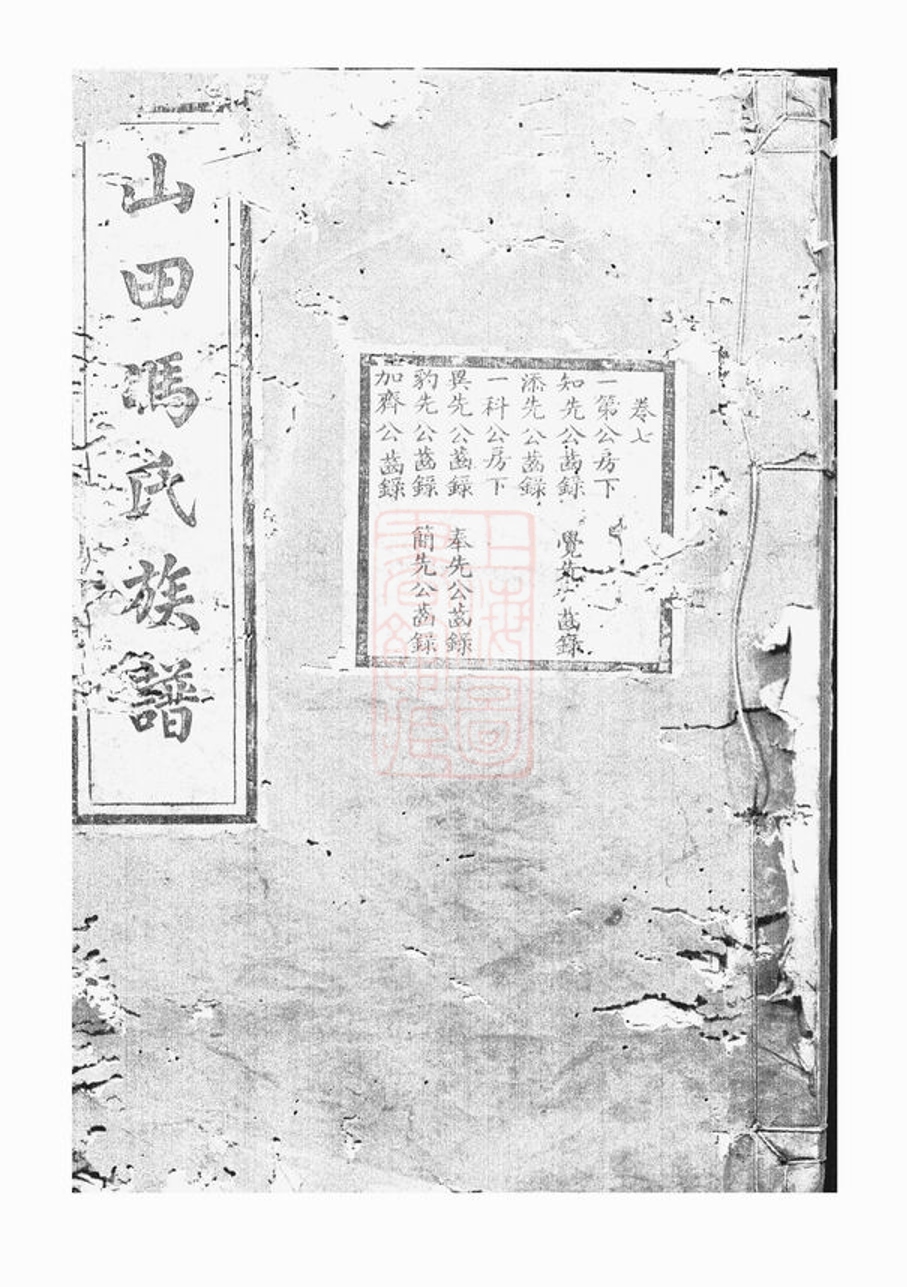 卷七
一第公房下
知先公齒錄 覺先公齒錄
添先公齒錄
一科公房下
異先公齒錄 奉先公齒錄
豹先公齒錄 簡先公齒錄
加齊公齒錄
山田馮氏族譜